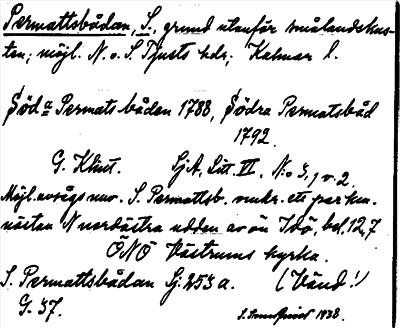 Permattsbådan, S., grund utanför smålandskus-
ten; möjl. N. o. S. Tjusts hdr; Kalmar l.
Söda Permats båden 1788, Södra Permatsbåd
1792.
G. Klint. Sj.A, Litt. VI, N:o 3, 1 v. 2.
Möjl. avsågs nuv. S. Permattsb. omkr. ett par km.
nästan N nordöstra udden av ön Idö, bel. 12,7
ÖNÖ Västrums kyrka.
S. Permattsbådan Sj. 253 a. (Vänd!)
G. 37. 1938.